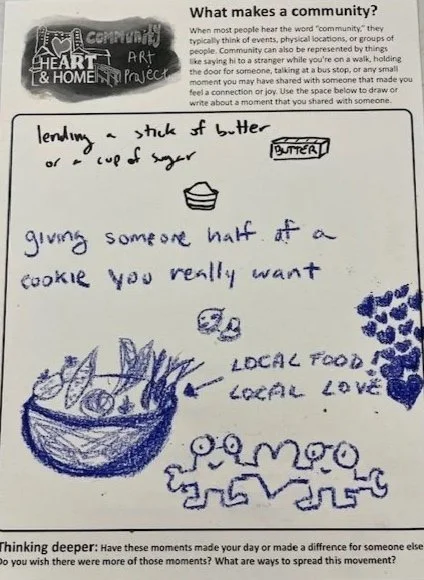 COMMUNITY
ART
Project
HEART
& HOME
What makes a community?
When most people hear the word "community," they
typically think of events, physical locations, or groups of
people. Community can also be represented by things
like saying hi to a stranger while you're on a walk, holding
the door for someone, talking at a bus stop, or any small
moment you may have shared with someone that made you
feel a connection or joy. Use the space below to draw or
write about a moment that you shared with someone.
lending a stick of butter
or a cup of sugar
BUTTER
giving someone half of a
cookie you really want
LOCAL FOOD!
LOCAL LOVE
Thinking deeper: Have these moments made your day or made a diffference for someone else
Do you wish there were more of those moments? What are ways to spread this movement?